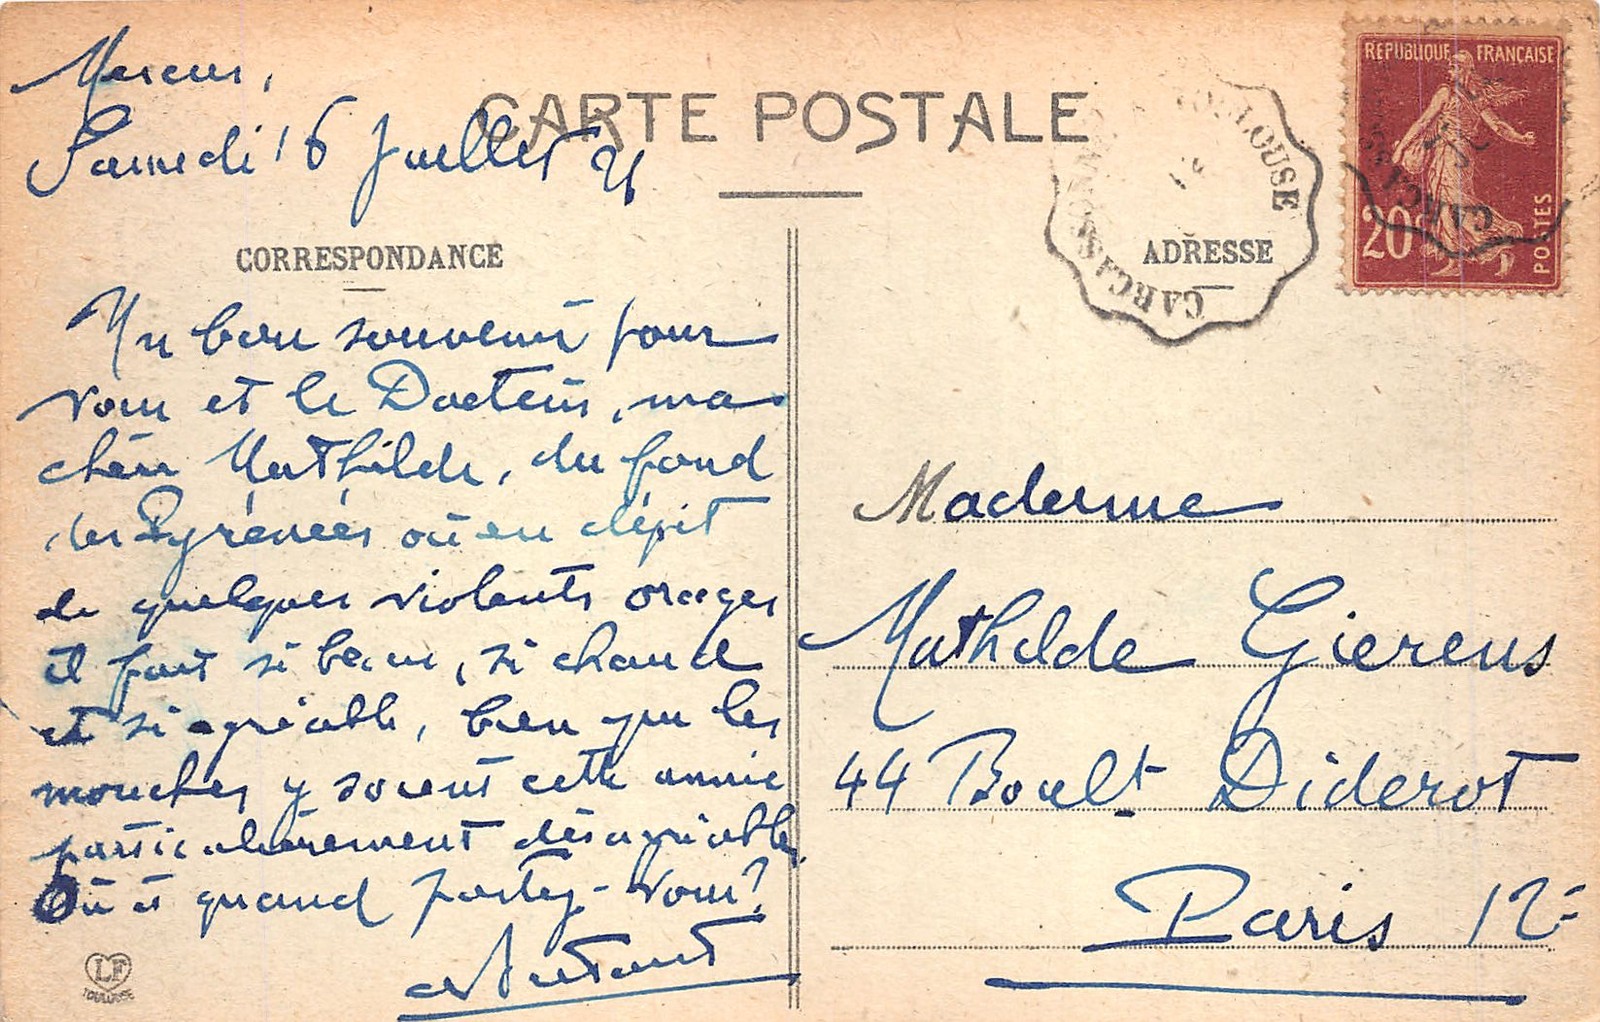 Mercus,
Samedi 16 Juillet 21
CARTE POSTALE
CORRESPONDANCE
Un bon souvenir pour
vous et le Docteur, ma
chère Mathilde, du fond
des Pyrénées où en dépit
de quelques violents orages
il fait si beau, si chaud
et si agréable, bien que les
mouches y soient cette année
particulièrement désagréables.
Où et quand partez-vous?
LF
TOULOUSE
TOULOUSE
CARCASSONNE
ADRESSE
REPUBLIQUE FRANÇAISE
20c
POSTES
CARCASS
Madame
Mathilde Gierens
44 Boult Diderot
Paris 12e